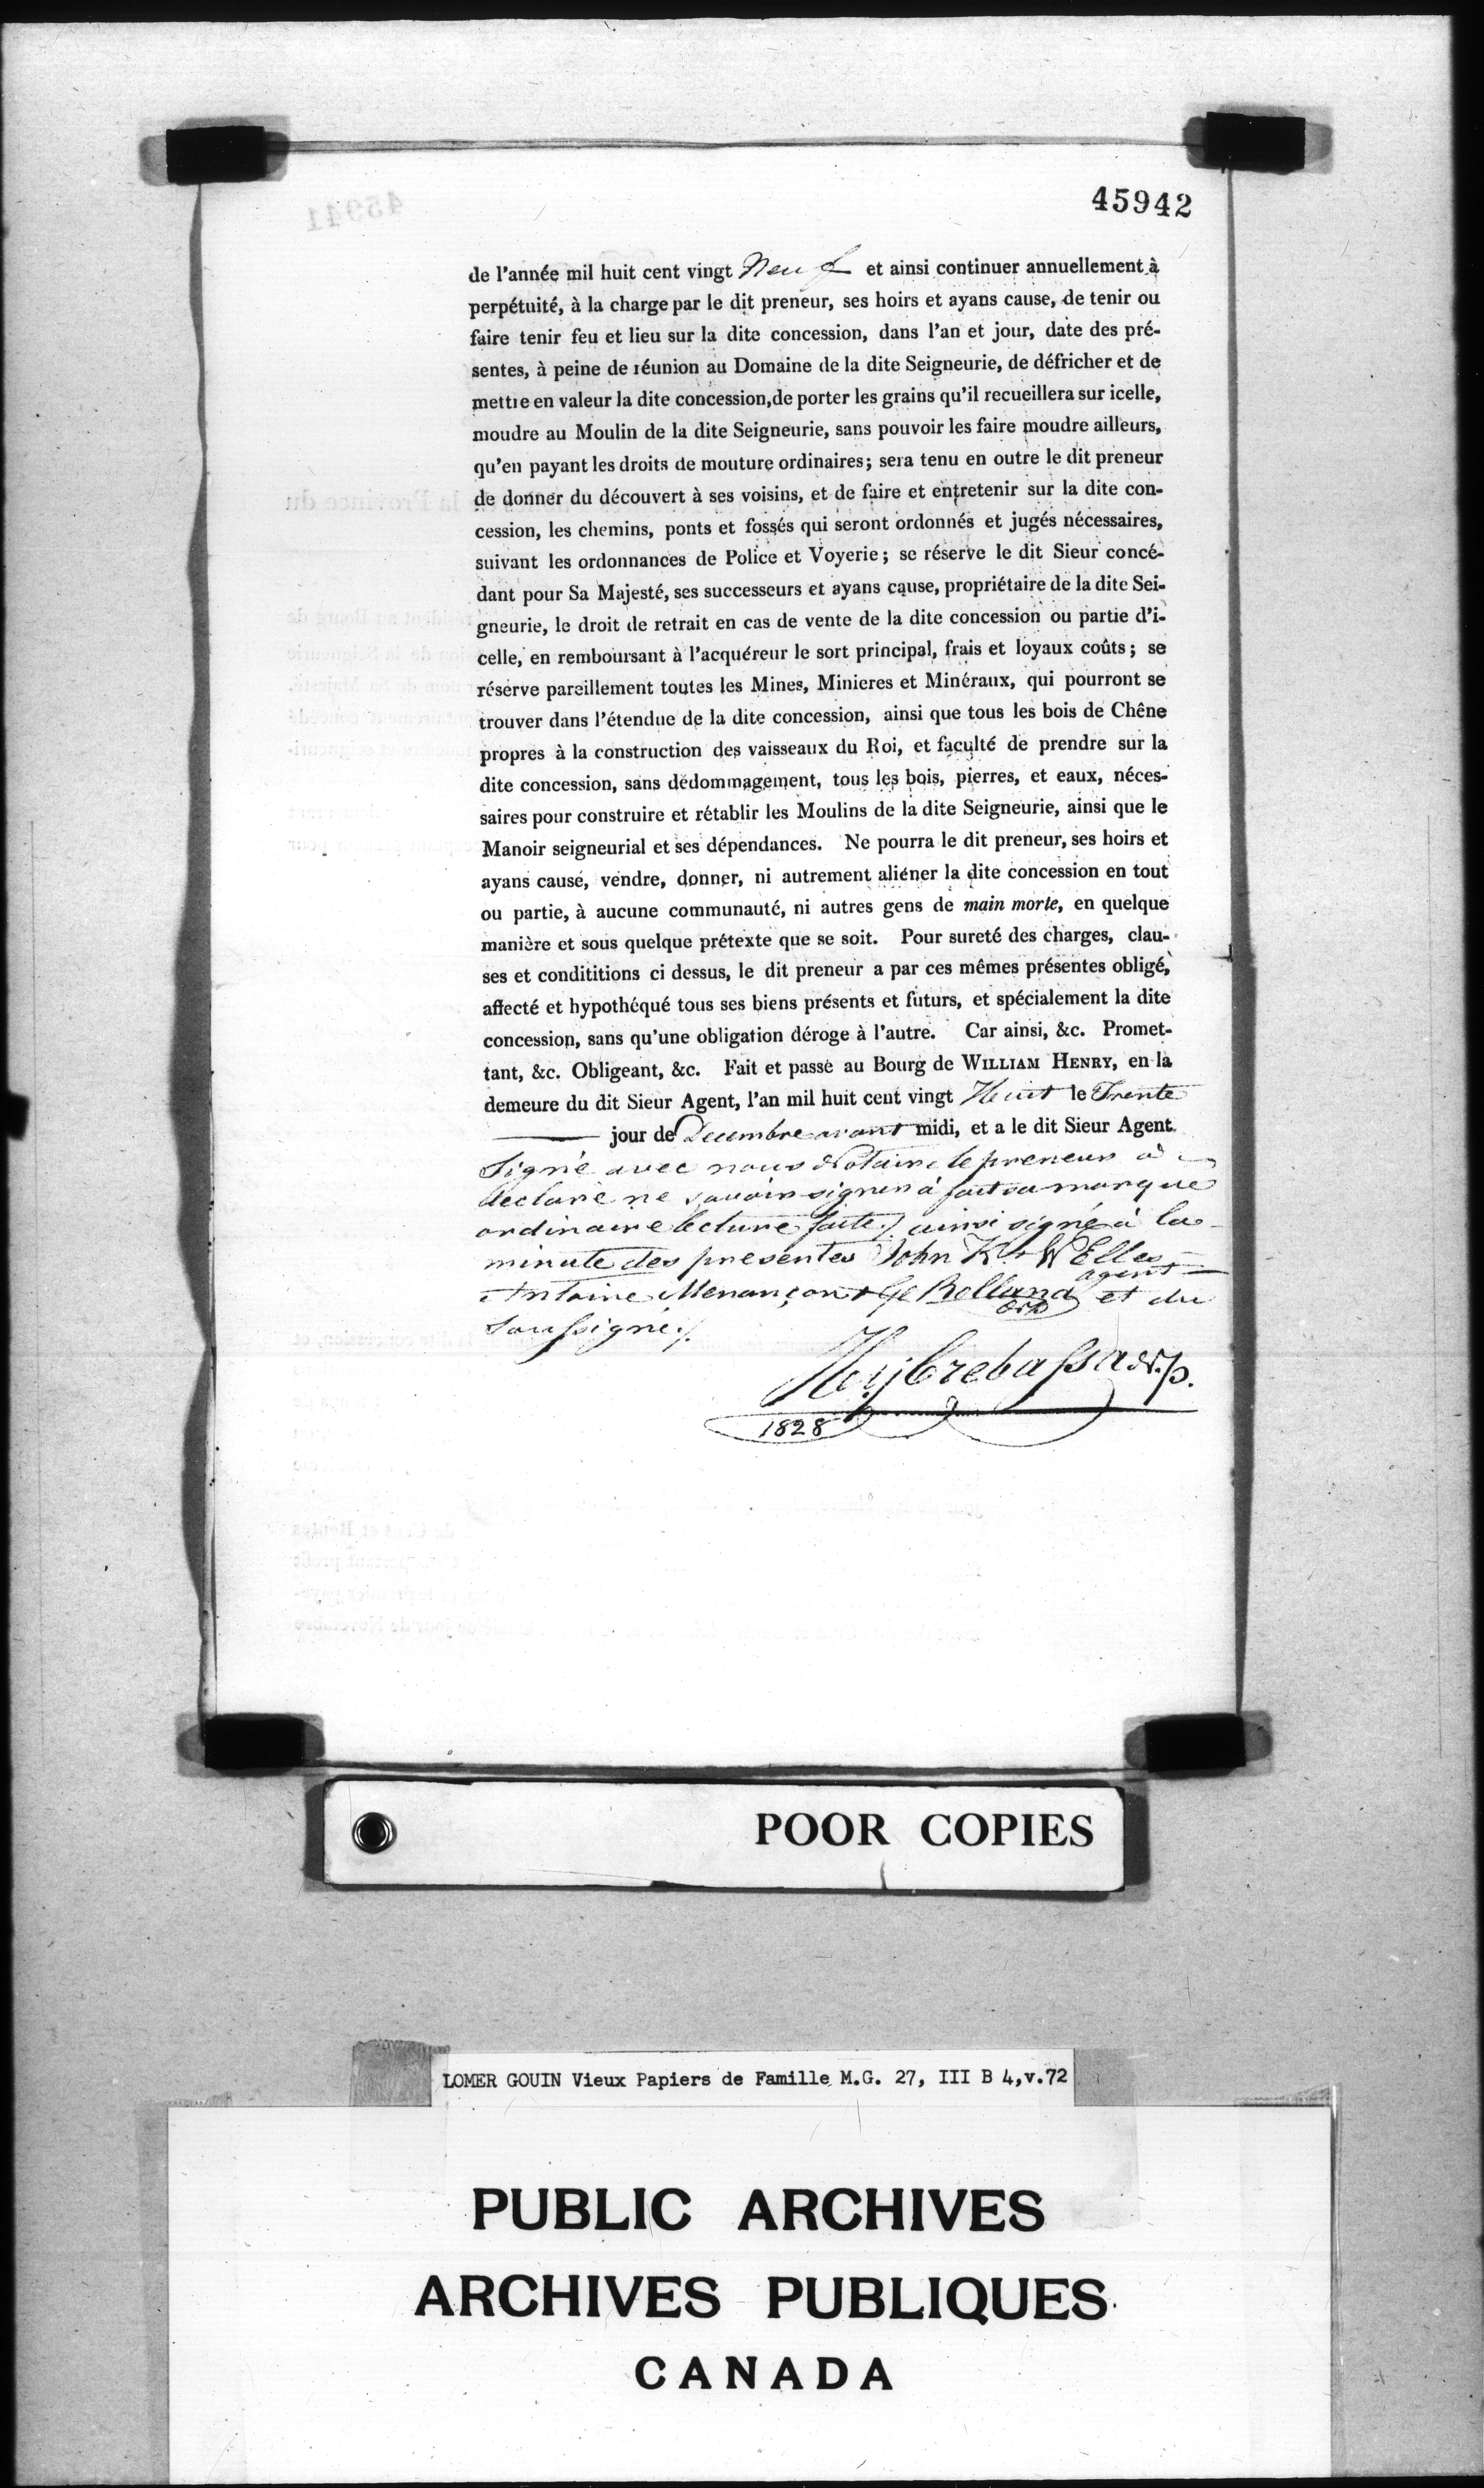 45942
de l'année mil huit cent vingt Neuf et ainsi continuer annuellement à
perpétuité, à la charge par le dit preneur, ses hoirs et ayans cause, de tenir ou
faire tenir feu et lieu sur la dite concession, dans l'an et jour, date des pré-
sentes, à peine de réunion au Domaine de la dite Seigneurie, de défricher et de
mettre en valeur la dite concession, de porter les grains qu'il recueillera sur icelle,
moudre au Moulin de la dite Seigneurie, sans pouvoir les faire moudre ailleurs,
qu'en payant les droits de mouture ordinaires; sera tenu en outre le dit preneur
de donner du découvert à ses voisins, et de faire et entretenir sur la dite con-
cession, les chemins, ponts et fossés qui seront ordonnés et jugés nécessaires,
suivant les ordonnances de Police et Voyerie; se réserve le dit Sieur concé-
dant pour Sa Majesté, ses successeurs et ayans cause, propriétaire de la dite Sei-
gneurie, le droit de retrait en cas de vente de la dite concession ou partie d'i-
celle, en remboursant à l'acquéreur le sort principal, frais et loyaux coûts; se
réserve pareillement toutes les Mines, Minieres et Minéraux, qui pourront se
trouver dans l'étendue de la dite concession, ainsi que tous les bois de Chêne
propres à la construction des vaisseaux du Roi, et faculté de prendre sur la
dite concession, sans dédommagement, tous les bois, pierres, et eaux, néces-
saires pour construire et rétablir les Moulins de la dite Seigneurie, ainsi que le
Manoir seigneurial et ses dépendances. Ne pourra le dit preneur, ses hoirs et
ayans cause, vendre, donner, ni autrement aliéner la dite concession en tout
ou partie, à aucune communauté, ni autres gens de main morte, en quelque
manière et sous quelque prétexte que se soit. Pour sureté des charges, clau-
ses et condititions ci dessus, le dit preneur a par ces mêmes présentes obligé,
affecté et hypothéqué tous ses biens présents et futurs, et spécialement la dite
concession, sans qu'une obligation déroge à l'autre. Car ainsi, &c. Promet-
tant, &c. Obligeant, &c. Fait et passé au Bourg de WILLIAM HENRY, en la
demeure du dit Sieur Agent, l'an mil huit cent vingt Huit le Trente
jour de Decembre avant midi, et a le dit Sieur Agent
Signé avec nous Notaire le preneur a
declaré ne savoir signer à fait sa marque
ordinaire lecture faite ./ ainsi signé à la
minute des presentes John K. Welles
agent
Antoine Menançon + Ge Rolland et du
Soussigné ./.
Hy Crebassa N.p.
1828
POOR COPIES
LOMER GOUIN Vieux Papiers de Famille M.G. 27, III B 4,v.72
PUBLIC ARCHIVES
ARCHIVES PUBLIQUES
CANADA